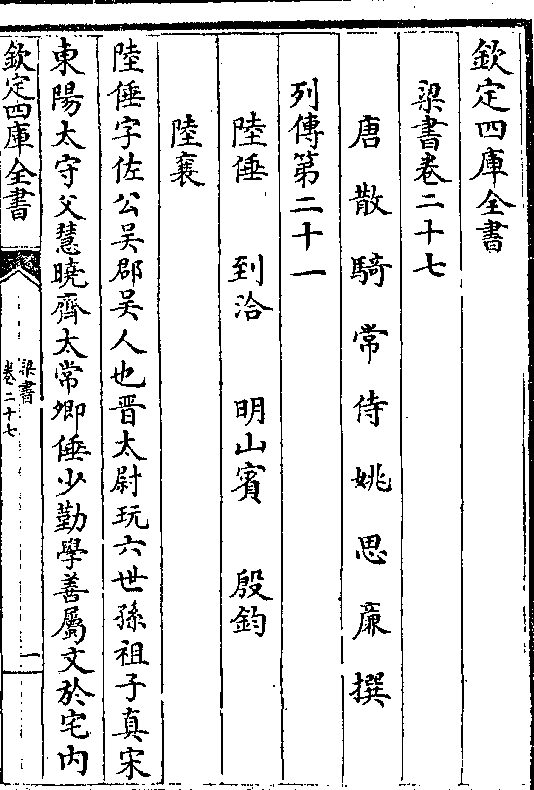 欽定四庫全書
梁書卷二十七
唐散騎常侍姚思廉撰
列傳第二十一
陸倕 到洽 明山賓 殷鈞
陸襄
陸倕字佐公吳郡吳人也晋太尉玩六世孫祖子真宋
東陽太守父慧曉齊太常卿倕少勤學善屬文於宅内
欽定四庫全書
梁書
卷二十七
一